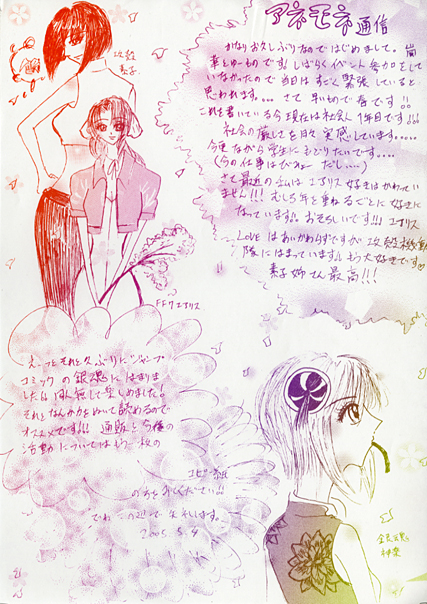 アネモネ通信
かなりお久しぶりなのではじめまして。嵐
華とゆーものです。しばらくイベント参加をして
いなかったので当日はすごく緊張していると
思われます。… さて 早いもので春です!!
これを書いている今現在は社会人1年目です!!!
社会の厳しさを日々実感しています。…
今更ながら学生にもどりたいです。…
(今の仕事は
だし…)
さて最近の
はエアリス好きはかわってい
ません!!! むしろ年を重ねるごとに好きに
なっています。おそろしいです!!! エアリス
LOVEはあいかわらずですが 攻殻機動
隊にはまっています。もう大好きです♡
素子姉さん最高!!!
攻殻
素子
FF7 エアリス
えーっとそれと久ぶりにジャンプ
コミックの銀魂にはまりま
した。
して楽しめました!
それとなんか力をぬいて読めるので
オススメです!!! 通販と今後の
活動についてはもう一枚の
コピー紙
のほうをみてください!!
でわこの辺で失礼します。
2005.5.4
銀魂
神楽